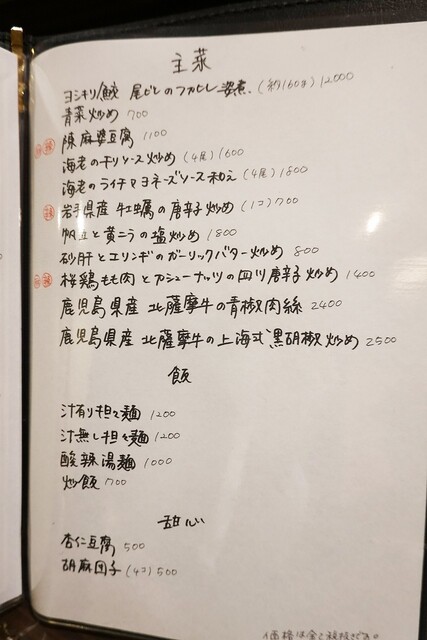 主菜
ヨシキリ鮫 尾びれのフカヒレ姿煮 (約160g) 12,000
青菜炒め 700
陳麻婆豆腐 1100
海老のチリソース炒め (4尾) 1600
海老のライチマヨネーズソース和え (4尾) 1800
岩手県産 牡蠣の唐辛子炒め (1コ) 700
帆立と黄ニラの塩炒め 1800
砂肝とエリンギのガーリックバター炒め 800
桜鶏もも肉とカシューナッツの四川唐辛子炒め 1400
鹿児島県産 北薩摩牛の青椒肉絲 2400
鹿児島県産 北薩摩牛の上海式黒胡椒炒め 2500
飯
汁有り担々麺 1200
汁無し担々麺 1200
酸辣湯麺 1000
炒飯 700
甜心
杏仁豆腐 500
胡麻団子 (4コ) 500
価格は全て税抜きです。